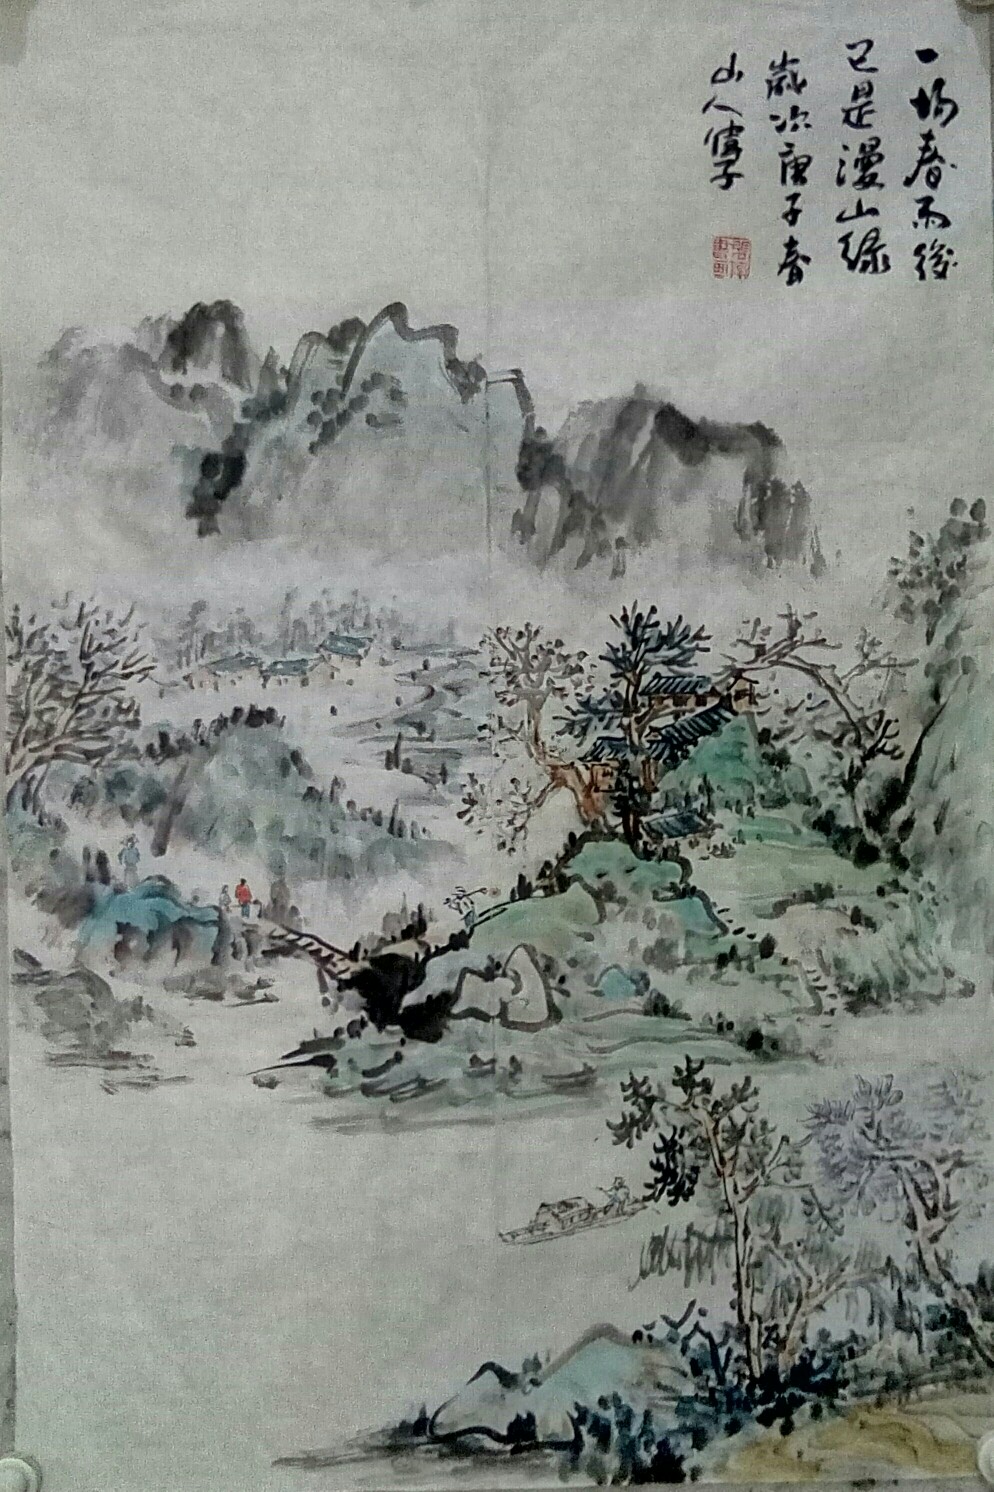 一场春雨後
已是漫山绿
歲次庚子春
山人偉子